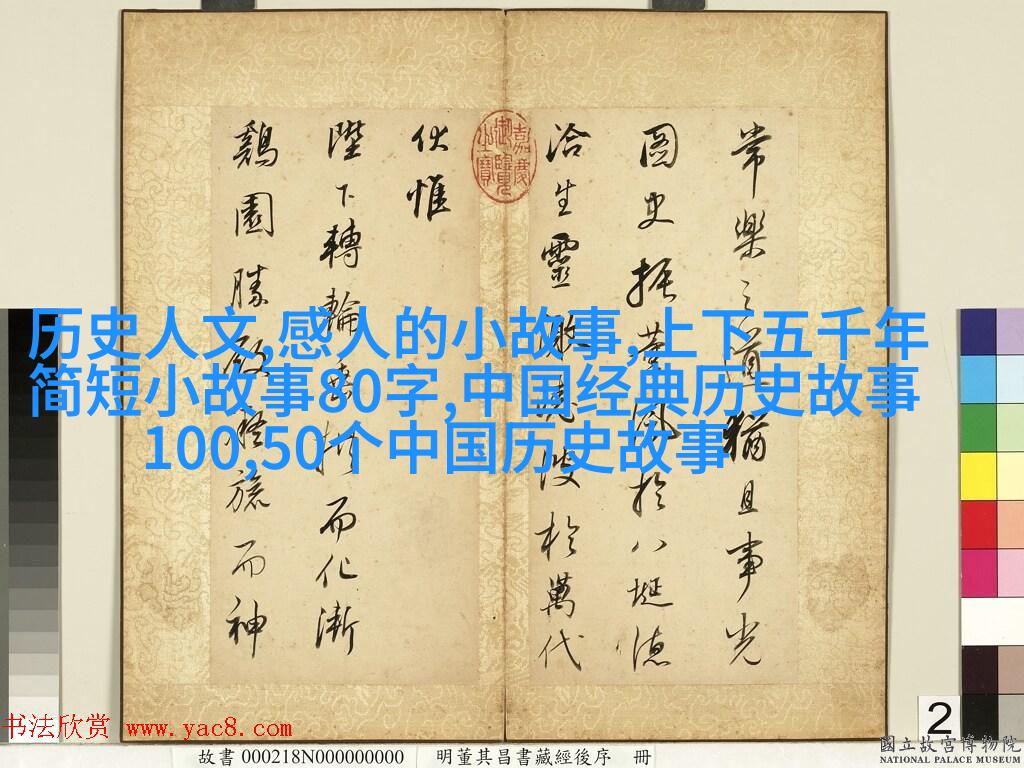 常樂之道猶且事光
圖史振薰風於八埏德
洽生靈激堯波於萬代
伏惟
陛下轉輪垂拱而化漸
鷄園勝殿凝旒而神
嘉慶御覽之寶
历史人文,感人的小故事,上下五千年
简短小故事80字,中国经典历史故事
100,50个中国历史故事
2
书法欣赏 www.yac8.com
故書 000218N000000000 明董其昌書藏經後序 冊
國立故宮博物院
NATIONAL PALACE MUSEUM